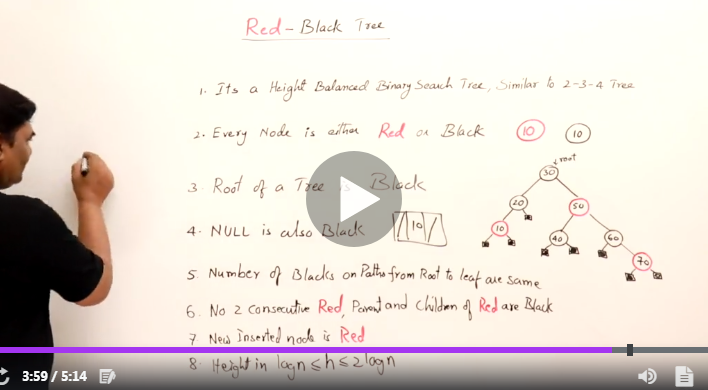 Red-Black Tree
1. Its a Height Balanced Binary Search Tree, Similar to 2-3-4 Tree
2. Every Node is either Red or Black 10 10
root
30
3. Root of a Tree is Black
20 50
4. NULL is also Black 10
10 40 60
70
5. Number of Blacks on Paths from Root to leaf are same
6. No 2 Consecutive Red, Parent and Children of Red are Black
7. New Inserted node is Red
8. Height in logn ≤ h ≤ 2logn
3:59 / 5:14